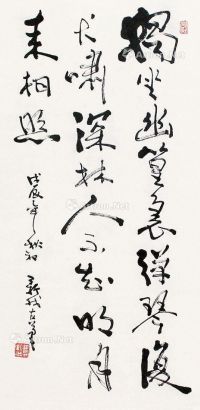 獨坐幽篁裏弹琴復
长嘯深林人不知明月
来相照
戊辰年秋初